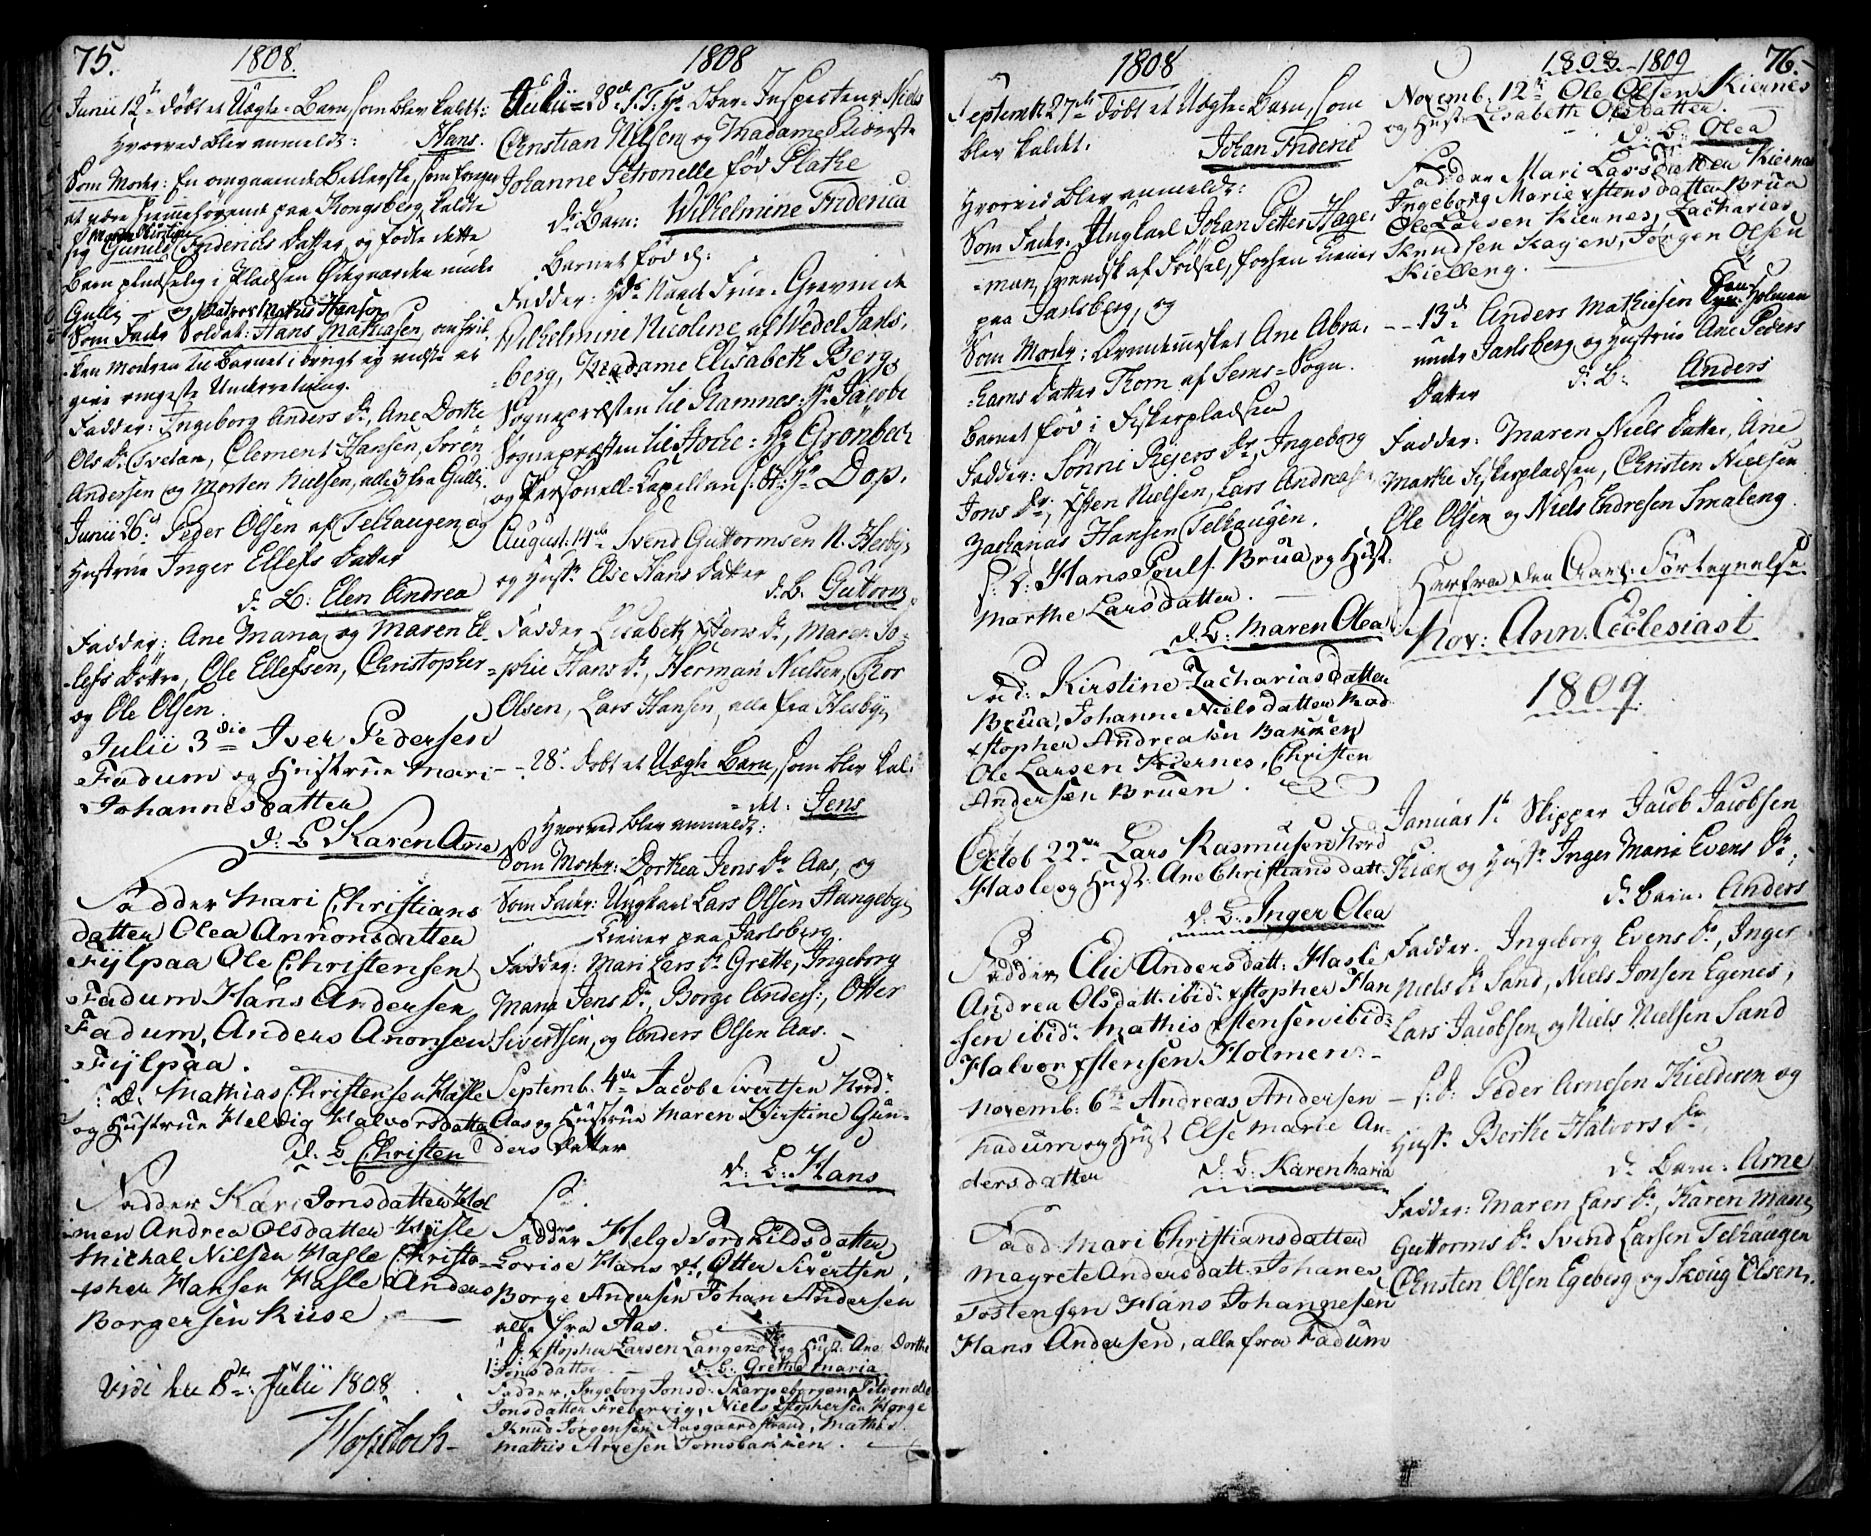 75.
1808.
Junii 12te döbt et Uægte-Barn, som blev kaldt:
Hvorved blev anmeldt: Hans.
Som Moder: En omgaaende Betlerske, som foregav
at være hiemmehörende paa Kongsberg, kaldte
Maren Kirstine
sig Gunild Friderichs Datter, og födte dette
Barn pludselig i Pladsen Ödegaarden under
Gullj
Som Fader Soldat: Hans Mathiasen, om hvil-
-ken Moderen til Barnet i övrigt ej vidste at
give ringeste Underretning.
Fadder: Ingeborg Anders Dr, Ane Dorthe
Ols Dr Svedan, Clement Hansen, Sören
Andersen og Morten Nielsen, alle 3 fra Gullj.
Junii 26: Peder Olsen af Telhaugen og
Hustrue Inger Ellefs Datter
d: B: Elen Andrea
Fadder: Ane Maria og Maren El-
-lefs Döttre, Ole Ellefsen, Christopher
og Ole Olsen.
Julii 3die Iver Pedersen
Fadum og Hustrue Mari
Johannesdatter
d: B Karen Ane
Fadder Mari Christians
datter Olea Annonsdatter
Fijlpaa Ole Christensen
Fadum Hans Andersen
Fadum, Anders Anonsen
Fijlpaa.
: D: Mathias Christensen Hasle
og Hustrue Helvig Halvorsdatter
d: B Christen
Fadder Kari Jonsdatter Hol
men Andrea Olsdatter Hasle
Michal Nilsen Hasle Christo-
pher Hansen Hasle Anders
Borgersen Riise
Vidi hu 8de: Julii 1808.
1808
Julii 28de S. T. Hr Ober-Inspecteur Niels
Christian Nielsen og Madame Kiereste
Johanne Petronelle föd Plathe
d: Barn: Wilhelmine Friderica
Barnet föd d:
Fadder: Hds Naade Frue Grevinde
Wilhelmine Nicoline af Wedel Jarls-
-berg, Madame Elisabeth Berg,
Sognepræsten til Ramnes: Hr Jacobi
Sognepræsten til Stocke: Hr Grönbech
og Personell-Capellan Hr Dop.
August: 14de Svend Guttormsen N. Hesbye
og Hustr: Else Hans Datter
d: B. Guttorm
Fadder Lisabeth Xstens Dr, Maren So-
-phie Hans Dr, Herman Nielsen, Thor
Olsen, Lars Hansen, alle fra Hesbye
- 28: döbt et Uægte Barn, som blev kal-
-det: Jens
Hvorved blev anmeldt:
Som Moder: Dorthea Jens Dr Aas, og
Som Fader: Ungkarl Lars Olsen Haugeby
tiener paa Jarlsberg.
Fadder: Mari Lars Dr Grette, Ingeborg
Maria Jens Dr, Borge Anders:, Otter
Sivertsen, og Anders Olsen Aas.
Septemb. 4de Jacob Sivertsen Nord-
Aas og Hustrue Maren Kirstine Gun-
ders Datter
d: B: Hans
Fadder Helge Tordkildsdatter
Lovise Hans dt, Otter Sivertsen,
Borge Andersen Johan Andersen
alle fra Aas.
Xstopher Larsen Langenö og Hust: Ane Dorthe
Jonsdatter d: B: Grethe Maria
Fadder, Ingeborg Jonsd: Skarpeborgen, Petronelle
Jonsdatter Frebervig, Niels Xstophersen Horge
Knud Jörgensen Aasgaardstrand, Mathis
Mathis Arvesen Tomsbakken.
1808
Septemb: 27de döbt et Uægte Barn, som
blev kaldet. Johan Frideric
Hvorved blev anmeldt:
Som Fader: Ungkarl Johan Petter Hage-
-man, Svendsk af Födsel, forhen tiener
paa Jarlsberg, og
Som Moder: Qvindemennesket Ane Abra-
-hams Datter Thom af Sems-Sogn.
Barnet föd i Fiskerpladsen
Fadder: Sönni Rejers Dr, Ingeborg
Jons Dr, Xsten Nielsen, Lars Andreas
Zacharias Hansen Telhaugen.
s: D: Hans Pouls: Brua og Hust:
Marthe Larsdatter.
d: B: Maren Olea
Fad: Kirstine Zachariasdatter
Brua, Johanne Nielsdatter
Xstopher Andreasen Bakken
Ole Larsen Kiernes, Christen
Andersen Bruen.
Octob 22de Lars Rasmusen Nord
Hasle og Hust: Ane Christiansdatt:
d: B: Inger Olea
Fadder, Elie Andersdatt: Hasle
Andrea Olsdatt. ibid: Xstopher Han
sen ibid: Mathis Xstensen ibid:
Halvor Xstensen Holmen.
Novemb: 6te Andreas Andersen
Fadum og Hust Else Marie An-
dersdatter d: B: Karen Maria
Fadd: Mari Christiansdatter
Magrete Andersdatt. Johanes
Tostensen Hans Johannesen
Hans Andersen, alle fra Fadum
1808-1809
76.
Novemb. 12te Ole Olsen Kiernes
og Hust: Lisabeth Olsdatter.
d: B: Olea
Fadder Mari Larsdatter Kiernes
Ingeborg Marie Xstensdatter Brua
Ole Larsen Kiernes, Zacharias
Knudsen Hagen, Jörgen Olsen
Kielleng.
-- 13de Anders Mathiesen Holman
under Jarlsberg og Hustrue Ane Peders
Datter d: B: Anders
Fadder: Maren Niels Datter, Ane
Marthe Fiskerpladsen, Christen Nielsen
Ole Olsen og Niels Endresen Smaleng.
Herfra den Aarl: Fortegnelse
Nov: Ann. Ecclesiast
1809.
Januar 1te Skipper Jacob Jacobsen
Kiær og Hustr: Inger Maria Evens Dr.
d: Barn: Anders
Fadder. Ingeborg Evens Dr, Inger
Niels Dr Sand, Niels Jonsen Egenes,
Lars Jacobsen og Niels Nielsen Sand
- s: D: Peder Arnesen Kielderen og
Hust: Berthe Halvors Dr,
d: Barn: Arne
Fadder: Maren Lars Dr, Karen Marie
Guttorms Dr Svend Larsen Telhaugen
Christen Olsen Egeberg og Skoug Olsen.